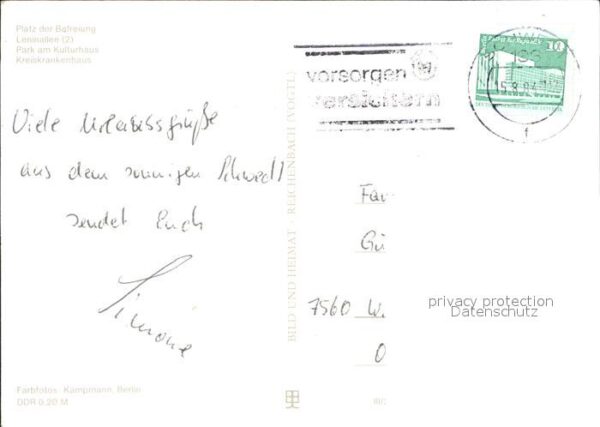 Platz der Befreiung
Leninallee (2)
Park am Kulturhaus
Kreiskrankenhaus
vorsorgen
versichern
10
15.8.84
f
Viele Urlaubsgrüße
aus dem sonnigen Schwedt
sendet Euch
Simone
BILD UND HEIMAT · REICHENBACH (VOGTL)
Fam
Gü
7560 W.
O
privacy protection
Datenschutz
Farbfotos: Kampmann, Berlin
DDR 0,20 M